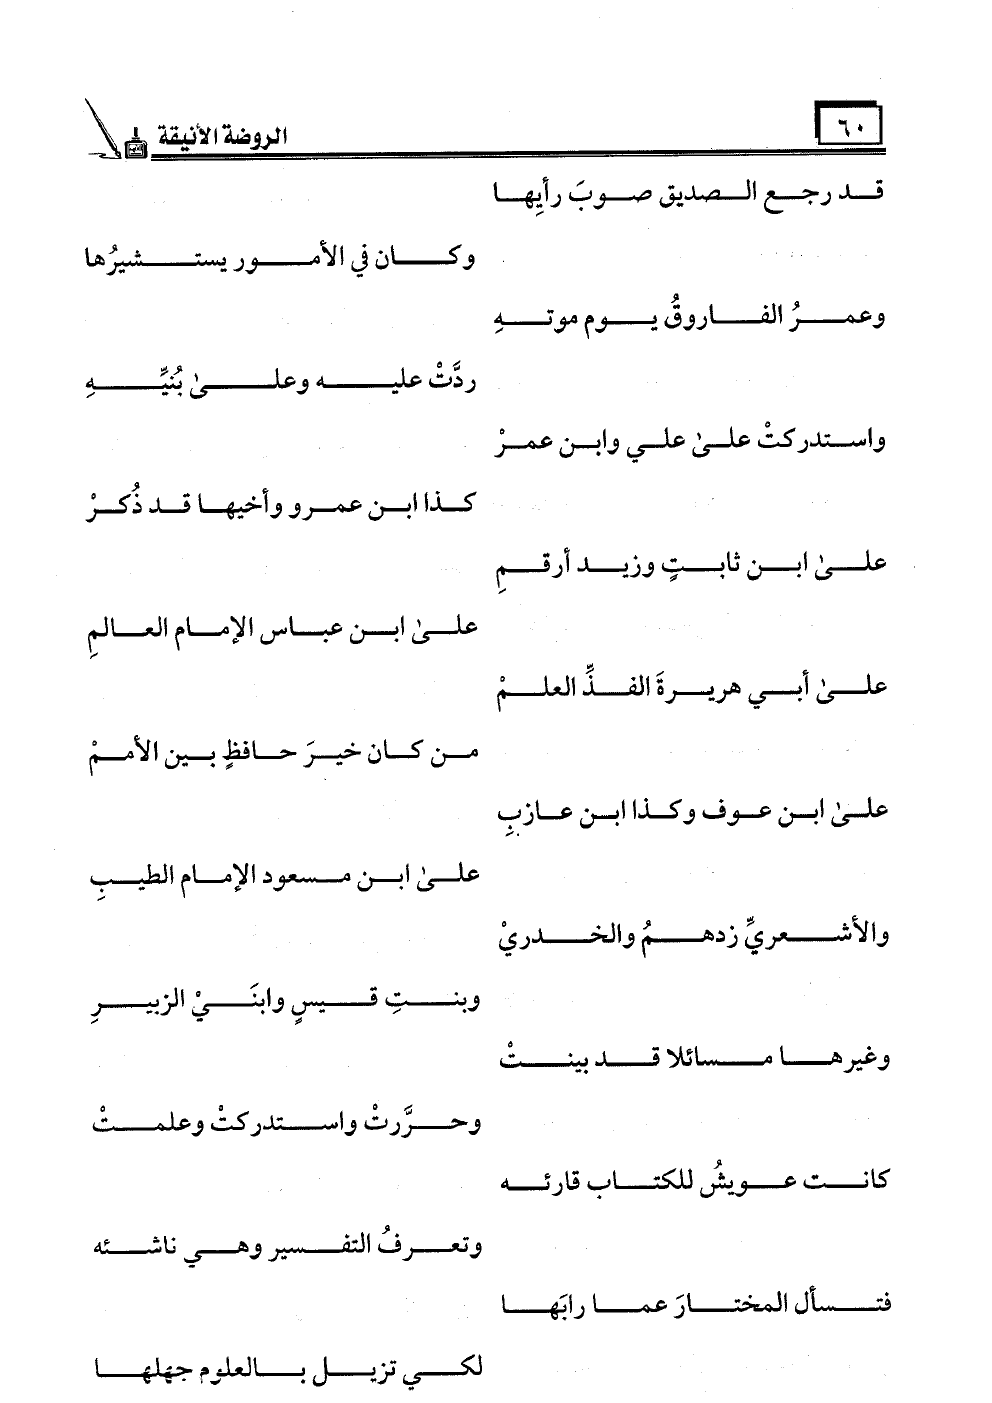 ٦٠
الروضة الأنيقة
قد رجع الصديق صوبَ رأيِها
وكان في الأمور يستشيرُها
وعمرُ الفاروقُ يوم موتهِ
ردَّتْ عليه وعلىٰ بُنيِّهِ
واستدركتْ علىٰ علي وابن عمرْ
كذا ابن عمرو وأخيها قد ذُكرْ
علىٰ ابن ثابتٍ وزيد أرقمِ
علىٰ ابن عباس الإمام العالمِ
علىٰ أبي هريرةَ الفذِّ العلمْ
من كان خيرَ حافظٍ بين الأممْ
علىٰ ابن عوف وكذا ابن عازبِ
علىٰ ابن مسعود الإمام الطيبِ
والأشعريِّ زدهمُ والخدريْ
وبنتِ قيسٍ وابنَيْ الزبيرِ
وغيرها مسائلا قد بينتْ
وحرَّرتْ واستدركتْ وعلمتْ
كانت عويشُ للكتاب قارئه
وتعرفُ التفسير وهي ناشئه
فتسأل المختارَ عما رابَها
لكي تزيل بالعلوم جهلها